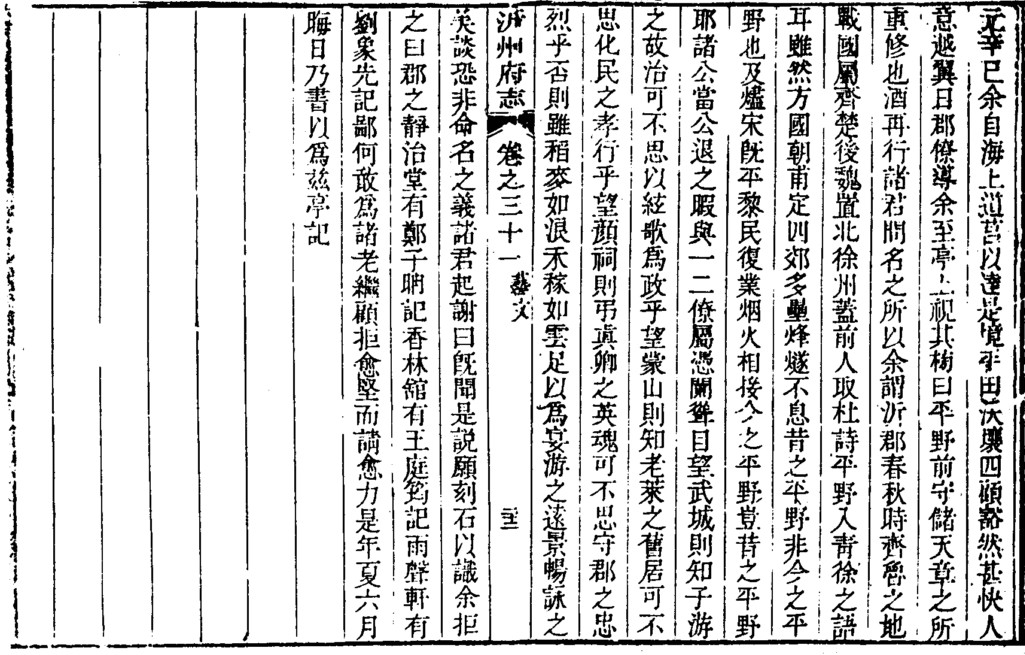 元辛巳余自海上道莒以達是境平田沃壤四顧豁然甚快人
意越翼日郡僚導余至亭上視其榜曰平野前守儲天章之所
重修也酒再行諸君問名之所以余謂沂郡春秋時齊魯之地
戰國屬齊楚後魏置北徐州蓋前人取杜詩平野入靑徐之語
耳雖然方國朝甫定四郊多壘烽燧不息昔之平野非今之平
野也及燼宋旣平黎民復業烟火相接今之平野豈昔之平野
耶諸公當公退之暇與一二僚屬憑闌聳目望武城則知子游
之故治可不思以絃歌爲政乎望蒙山則知老萊之舊居可不
思化民之孝行乎望顔祠則弔眞卿之英魂可不思守郡之忠
烈乎否則雖稻麥如浪禾稼如雲足以爲宴游之遠景暢詠之
沂州府志 卷之三十一 藝文 三
美談恐非命名之義諸君起謝曰旣聞是說願刻石以識余拒
之曰郡之靜治堂有鄭子聃記香林舘有王庭筠記雨聲軒有
劉象先記鄙何敢爲諸老繼顧拒愈堅而請愈力是年夏六月
晦日乃書以爲玆亭記